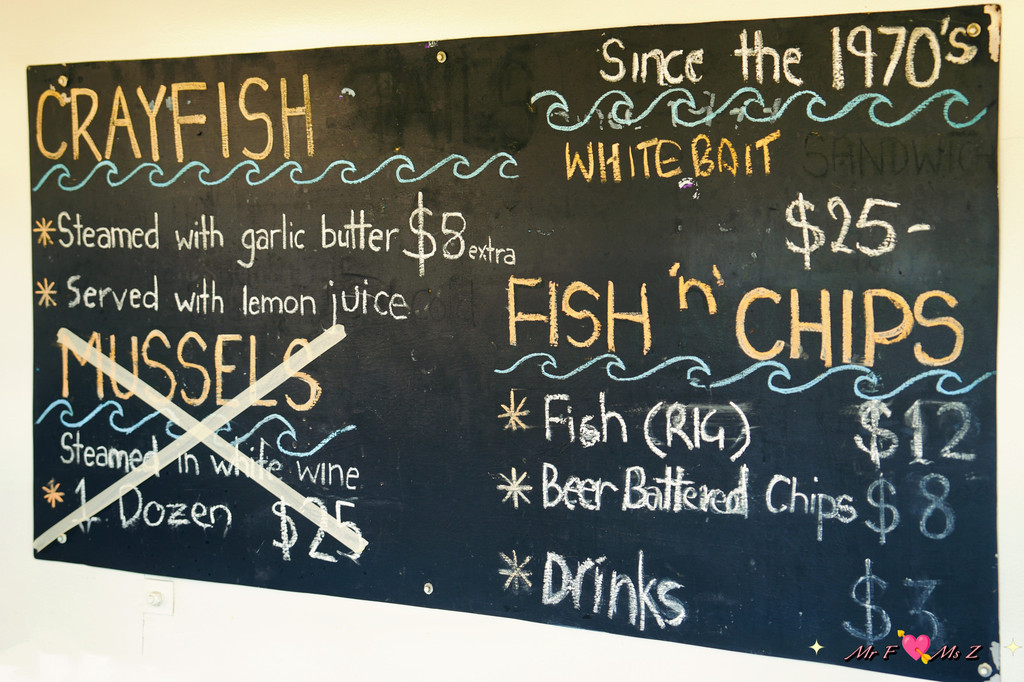 CRAYFISH
* Steamed with garlic butter $8 extra
* Served with lemon juice
MUSSELS
Steamed in white wine
* 1 Dozen $25
Since the 1970's
WHITEBAIT SANDWICH
$25-
FISH 'n' CHIPS
* Fish (RIG) $12
* Beer Battered Chips $8
* Drinks $3
Mr F Ms Z